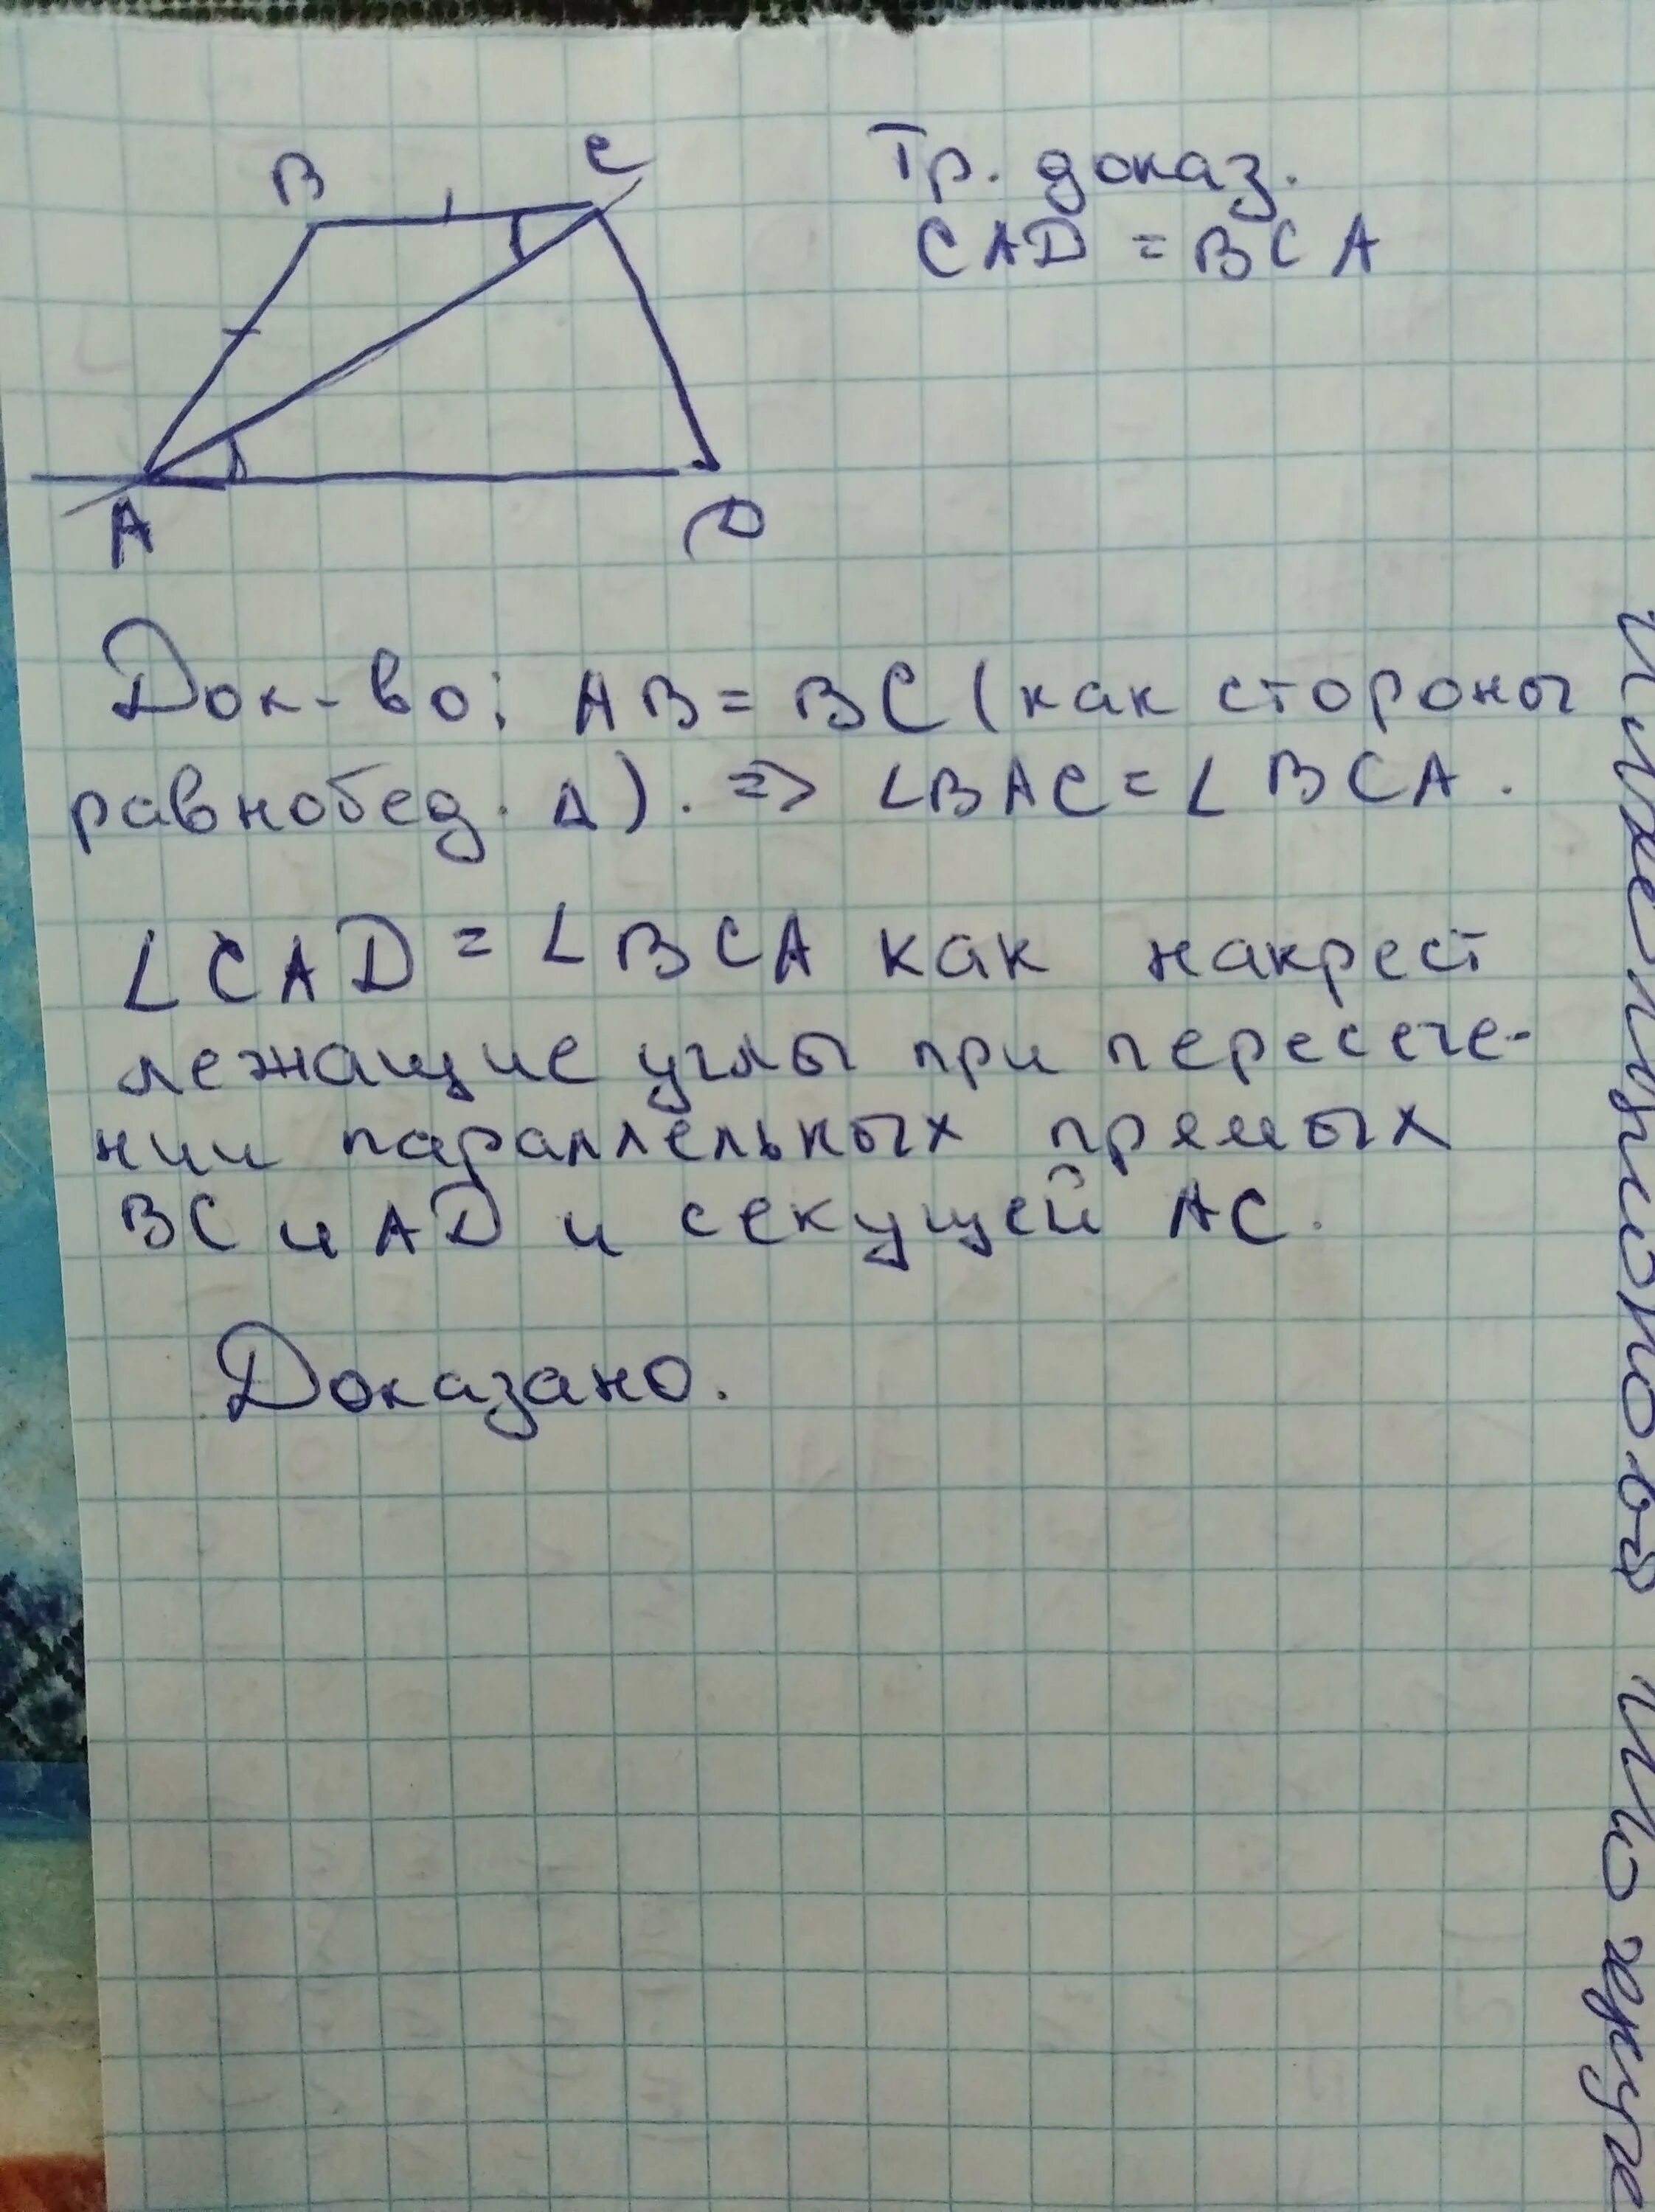 B
C
A
D
Тр. доказ.
CAD = BCA
Док-во: AB = BC (как стороны
равнобед. Δ). => ∠BAC = ∠BCA.
∠CAD = ∠BCA как накрест
лежащие углы при пересече-
нии параллельных прямых
BC и AD и секущей AC.
Доказано.